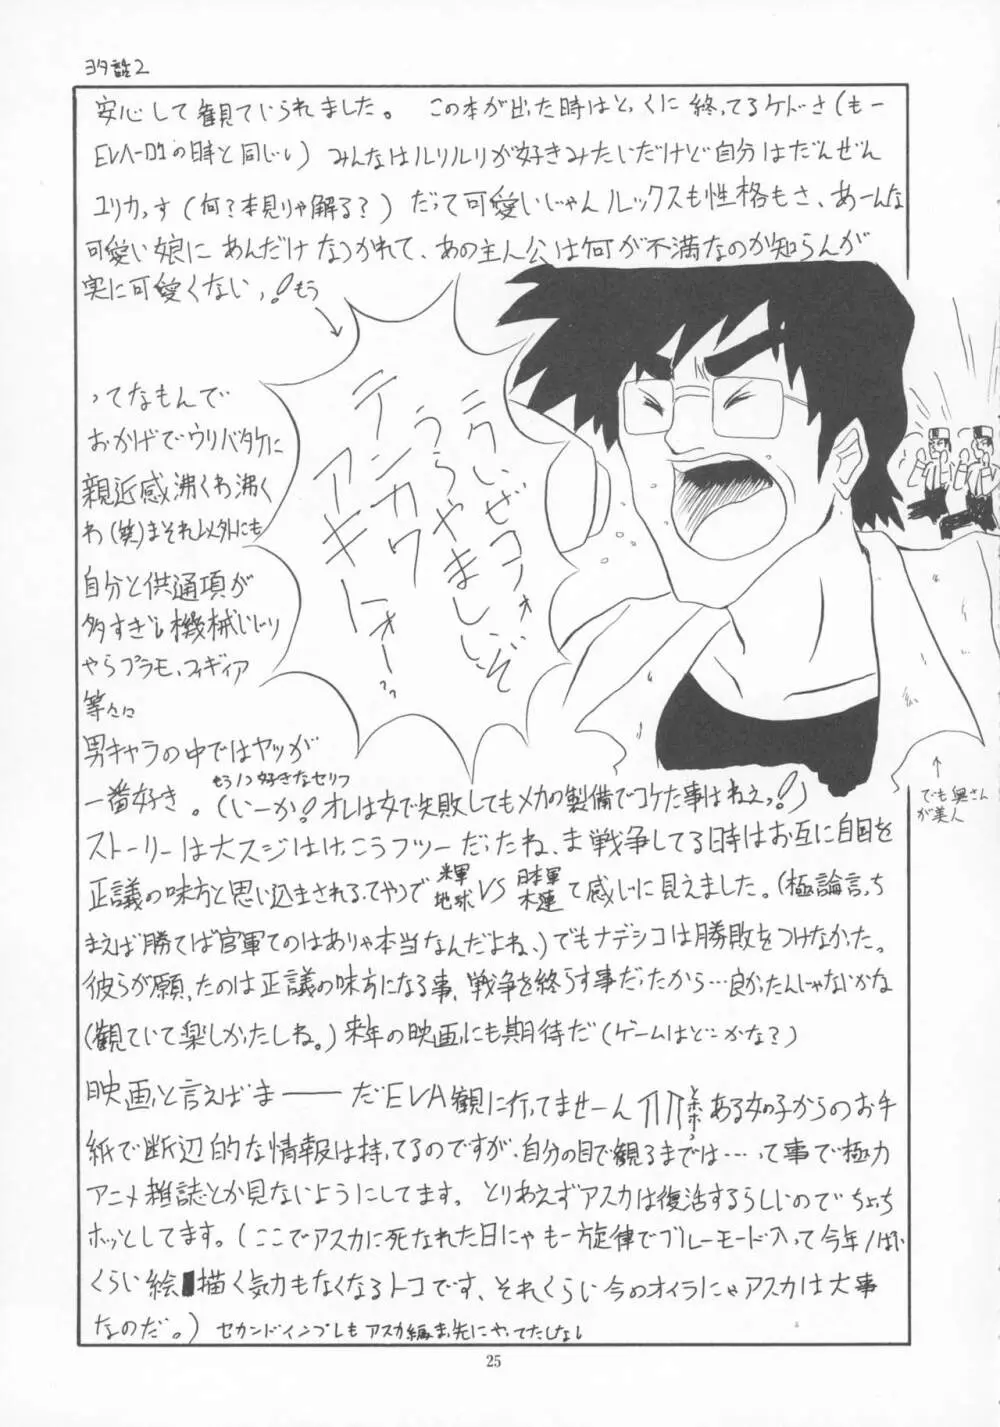 ヨタ話2
安心して観てじられました。 この本が出た時はとっくに終ってるケドさ(もー
EVA-01の時と同じい)みんなはルリルリが好きみたいだけど自分はだんぜん
ユリカっす(何?本見りゃ解る?)だって可愛いじゃんルックスも性格もさ、あーんな
可愛い娘にあんだけなつかれて、あの主人公は何が不満なのか知らんが
実に可愛くないっ!もう
ニクいぜコノォ
うらやましいぞ
テンカワ
アキトォーっっ
ってなもんで
おかげでウリバタケに
親近感沸くわ沸く
わ(笑)まそれ以外にも
自分と供通項が
多すぎる機械いじり
やらプラモ、フィギィア
等々に
男キャラの中ではヤツが
もう1つ好きなセリフ
一番好き。(いーか!オレは女で失敗してもメカの製備でコケた事はねぇっ!)
でも奥さん
が美人
ストーリーは大スジはけっこうフツーだったね、ま戦争してる時はお互に自国を
正議の味方と思い込まされるってやつで 米軍地球 VS 日本軍木連 て感じに見えました。(極論言っち
まえば勝てば官軍てのはありゃ本当なんだよね、)でもナデシコは勝敗をつけなかった。
彼らが願ったのは正議の味方になる事、戦争を終らす事だったから…良かったんじゃないかな
(観ていて楽しかったしね。)来年の映画にも期待だ(ゲームはどこかな?)
映画と言えばま――だEVA観に行ってませーん トホホっ ある女の子からのお手
紙で断辺的な情報は持ってるのですが、自分の目で観るまでは…って事で極力
アニメ雑誌とか見ないようにしてます。とりあえずアスカは復活するらしいのでちょっち
ホッとしてます。(ここでアスカに死なれた日にゃもー方旋律でブルーモード入って今年1ぱい
くらい絵描く気力もなくなるトコです、それくらい今のオイラにゃアスカは大事
なのだ。) セカンドインプレもアスカ編ま先にやってたしなし
25